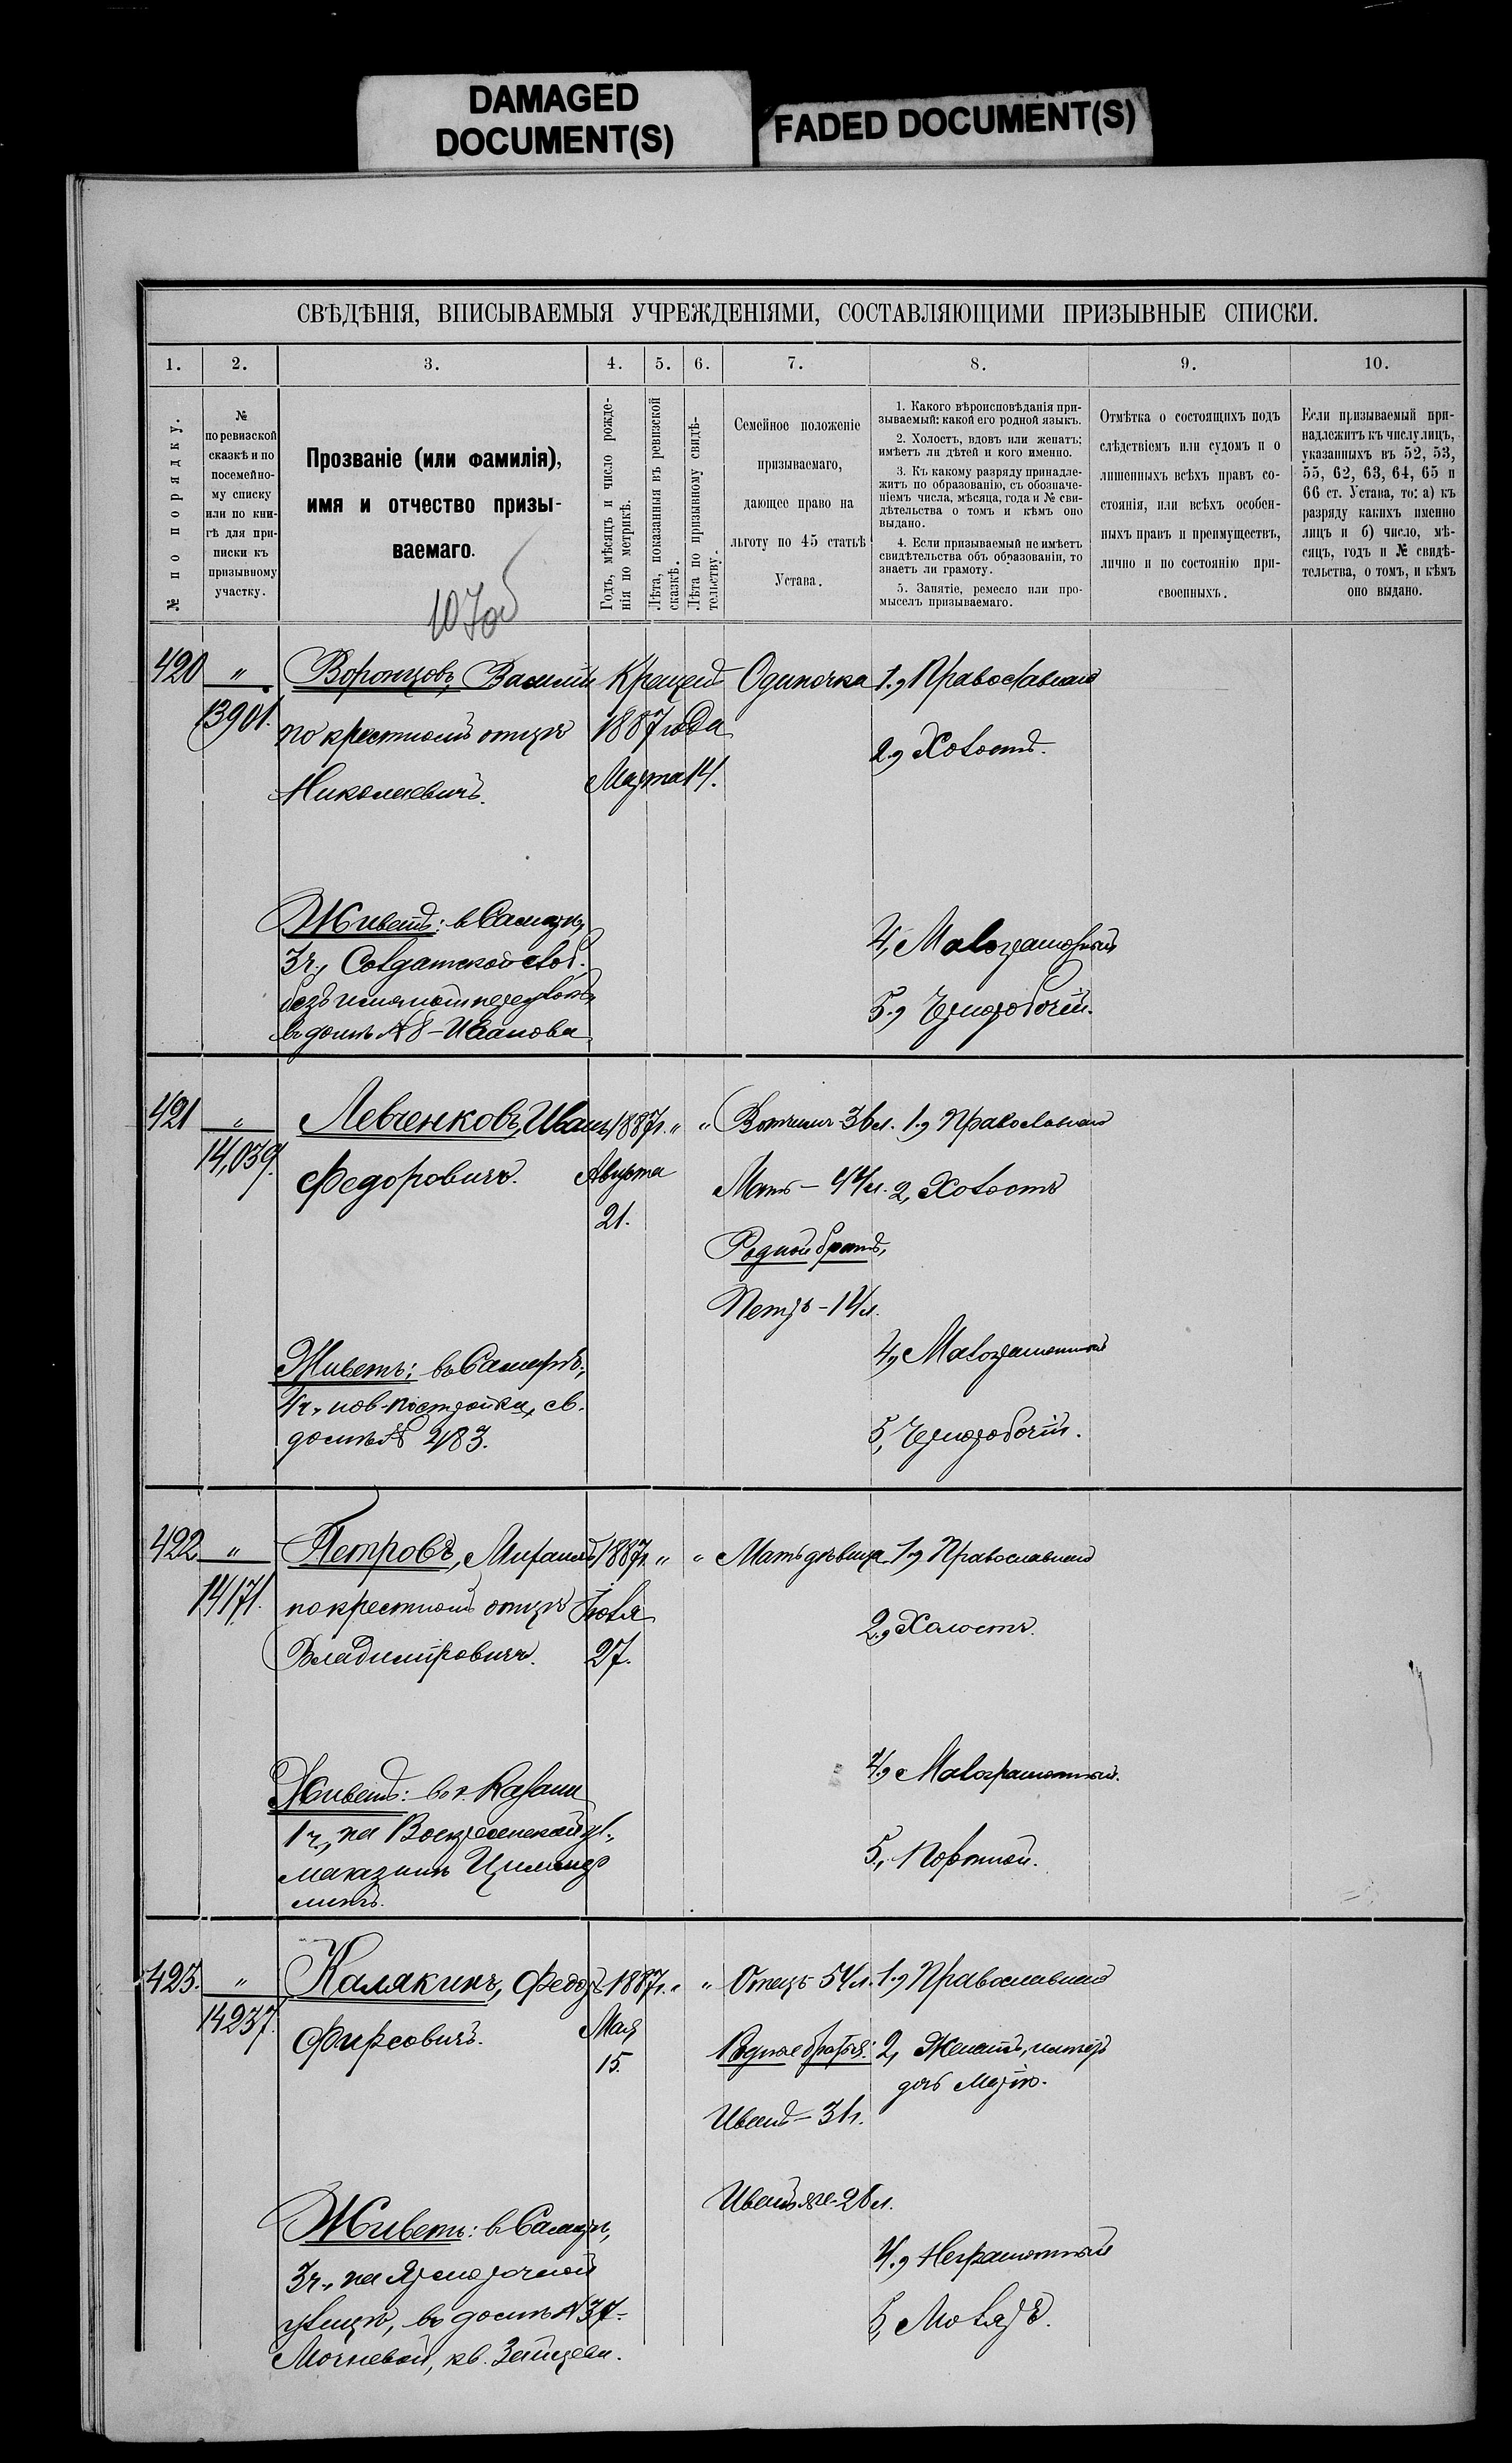 DAMAGED
DOCUMENT(S)
FADED DOCUMENT(S)
СВѢДѢНІЯ, ВПИСЫВАЕМЫЯ УЧРЕЖДЕНІЯМИ, СОСТАВЛЯЮЩИМИ ПРИЗЫВНЫЕ СПИСКИ.
1. 2. 3. 4. 5. 6. 7. 8. 9. 10.
№ по порядку.
№
по ревизской
сказкѣ и по
посемейно-
му списку
или по кни-
гѣ для при-
писки къ
призывному
участку.
Прозваніе (или фамилія),
имя и отчество призы-
ваемаго.
107об
Годъ, мѣсяцъ и число рожде-
нія по метрикѣ.
Лѣта, показанныя въ ревизской
сказкѣ.
Лѣта по призывному свидѣ-
тельству.
Семейное положеніе
призываемаго,
дающее право на
льготу по 45 статьѣ
Устава.
1. Какого вѣроисповѣданія при-
зываемый: какой его родной языкъ.
2. Холостъ, вдовъ или женатъ:
имѣетъ ли дѣтей и кого именно.
3. Къ какому разряду принадле-
житъ по образованію, съ обозначе-
ніемъ числа, мѣсяца, года и № сви-
дѣтельства о томъ и кѣмъ оно
выдано.
4. Если призываемый не имѣетъ
свидѣтельства объ образованіи, то
знаетъ ли грамоту.
5. Занятіе, ремесло или про-
мыселъ призываемаго.
Отмѣтка о состоящихъ подъ
слѣдствіемъ или судомъ и о
лишенныхъ всѣхъ правъ со-
стоянія, или всѣхъ особен-
ныхъ правъ и преимуществъ,
лично и по состоянію при-
своенныхъ.
Если призываемый при-
надлежитъ къ числу лицъ,
указанныхъ въ 52, 53,
55, 62, 63, 64, 65 и
66 ст. Устава, то: а) къ
разряду какихъ именно
лицъ и б) число, мѣ-
сяцъ, годъ и № свидѣ-
тельства, о томъ, и кѣмъ
оно выдано.
420 " Воронцовъ, Василій Крещен Одиночка 1., Православнаго
13901. по крестномъ отцѣ 1887 года
2., Холостъ.
Николаевичъ. Марта 14.
Живетъ: в Самарѣ,
4, Малограмотный
3 ч., Солдатской слоб.
безъимянной переулокъ,
5., Чернорабочій.
въ домѣ № 8 - Иванова
421 " Левченковъ, Иванъ 1887 г. " " Вотчимъ 36 л. 1., Православнаго
14,039. Федоровичъ. Августа Мать - 44 л. 2, Холостъ
21. Родной братъ,
Петръ - 14 л.
Живетъ: въ Самарѣ, 4, Малограмотный
4 ч., нов-постройка, св.
домъ № 283. 5, Чернорабочій.
422 " Петровъ, Михаилъ 1887 г. " " Мать дѣвица 1., Православнаго
14171. по крестномъ отцѣ Іюля
2., Холостъ.
Владиміровичъ. 27.
4., Малограмотный.
Живетъ: въ г. Казани
1 ч., на Воскресенской ул.,
магазинъ
5., Портной.
423. " Калякинъ, Федоръ 1887 г. " " Отецъ 54 л. 1., Православнаго
14237. Фирсовичъ. Мая Родные братья: 2, Женатъ, имѣетъ
15. дочь Марію.
Иванъ - 31 г.
Иванъ же - 26 л.
Живетъ: в Самарѣ,
4., Неграмотный
3 ч., на Ярмарочной
улицѣ, въ домѣ № 37 -
5, Маляръ.
Мочневой, кв. Зайцева.